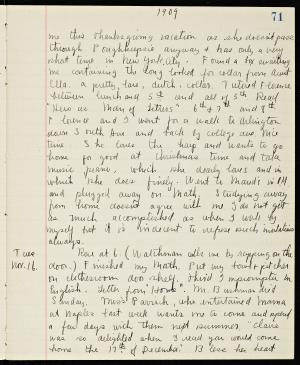 1909
71
me this Thanksgiving vacation as she doesn't pass
through Poughkeepsie anyway & has only a very
short time in New York city. Found a box awaiting
me containing the long looked for collar from Aunt
Ella. a pretty, lace, dutch collar. I visited Florence
between lunch and 5th and all of 5th Read
"Hero as Man of Letters" 6th & 7th and 8th
Florence and I went for a walk to Arlington
down South Ave and back by college ave. Nice
time. She loves the harp and wants to go
home for good at Christmas time and take
music, piano, which she dearly loves and in
which she does finely. Went to Maude's in
and plugged away for Math. Studying away
from home doesn't agree with me I do not get
as much accomplished as when I work by
myself but it is indecent to refuse such invitations
always.
Tues
Nov. 16.
Rose at 6. (Watchman calls me by rapping on the
door.) Finished my Math. Put my hand pitcher
on clothesroom shelf. Third impromptu in
English. Letter from "Home". M. Bushman died
Sunday. Miss Pavrich, who entertained Mama
at Naples last week wants me to come and spend
a few days with them next summer. "Claire
was so delighted when I read you would come
home the 17th of December." Bless her heart